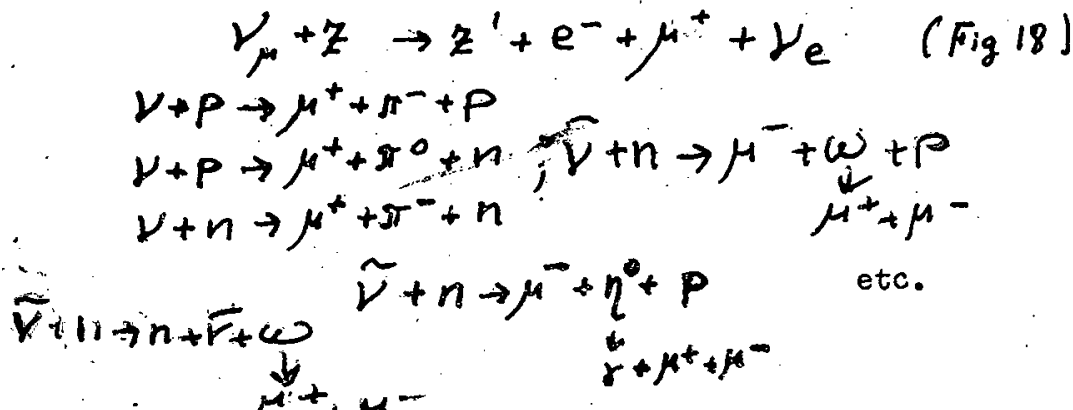 ν_μ + Z → Z' + e⁻ + μ⁺ + ν_e (Fig 18)
ν + p → μ⁺ + π⁻ + p
ν + p → μ⁺ + π⁰ + n ; ν̃ + n → μ⁻ + ω + p
ν + n → μ⁺ + π⁻ + n μ⁺ + μ⁻
ν̃ + n → μ⁻ + η⁰ + p etc.
ν̃ + n → n + ν̃ + ω
γ + μ⁺ + μ⁻
μ⁺, μ⁻